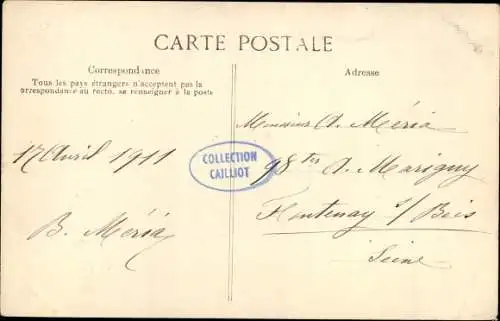 CARTE POSTALE
Correspondance
Tous les pays étrangers n'acceptent pas la
correspondance au recto, se renseigner à la poste
Adresse
17 Avril 1911
B. Méria
COLLECTION
CAILLIOT
Monsieur A. Méria
98 ter A. Marigny
Fontenay s/ Bois
Seine